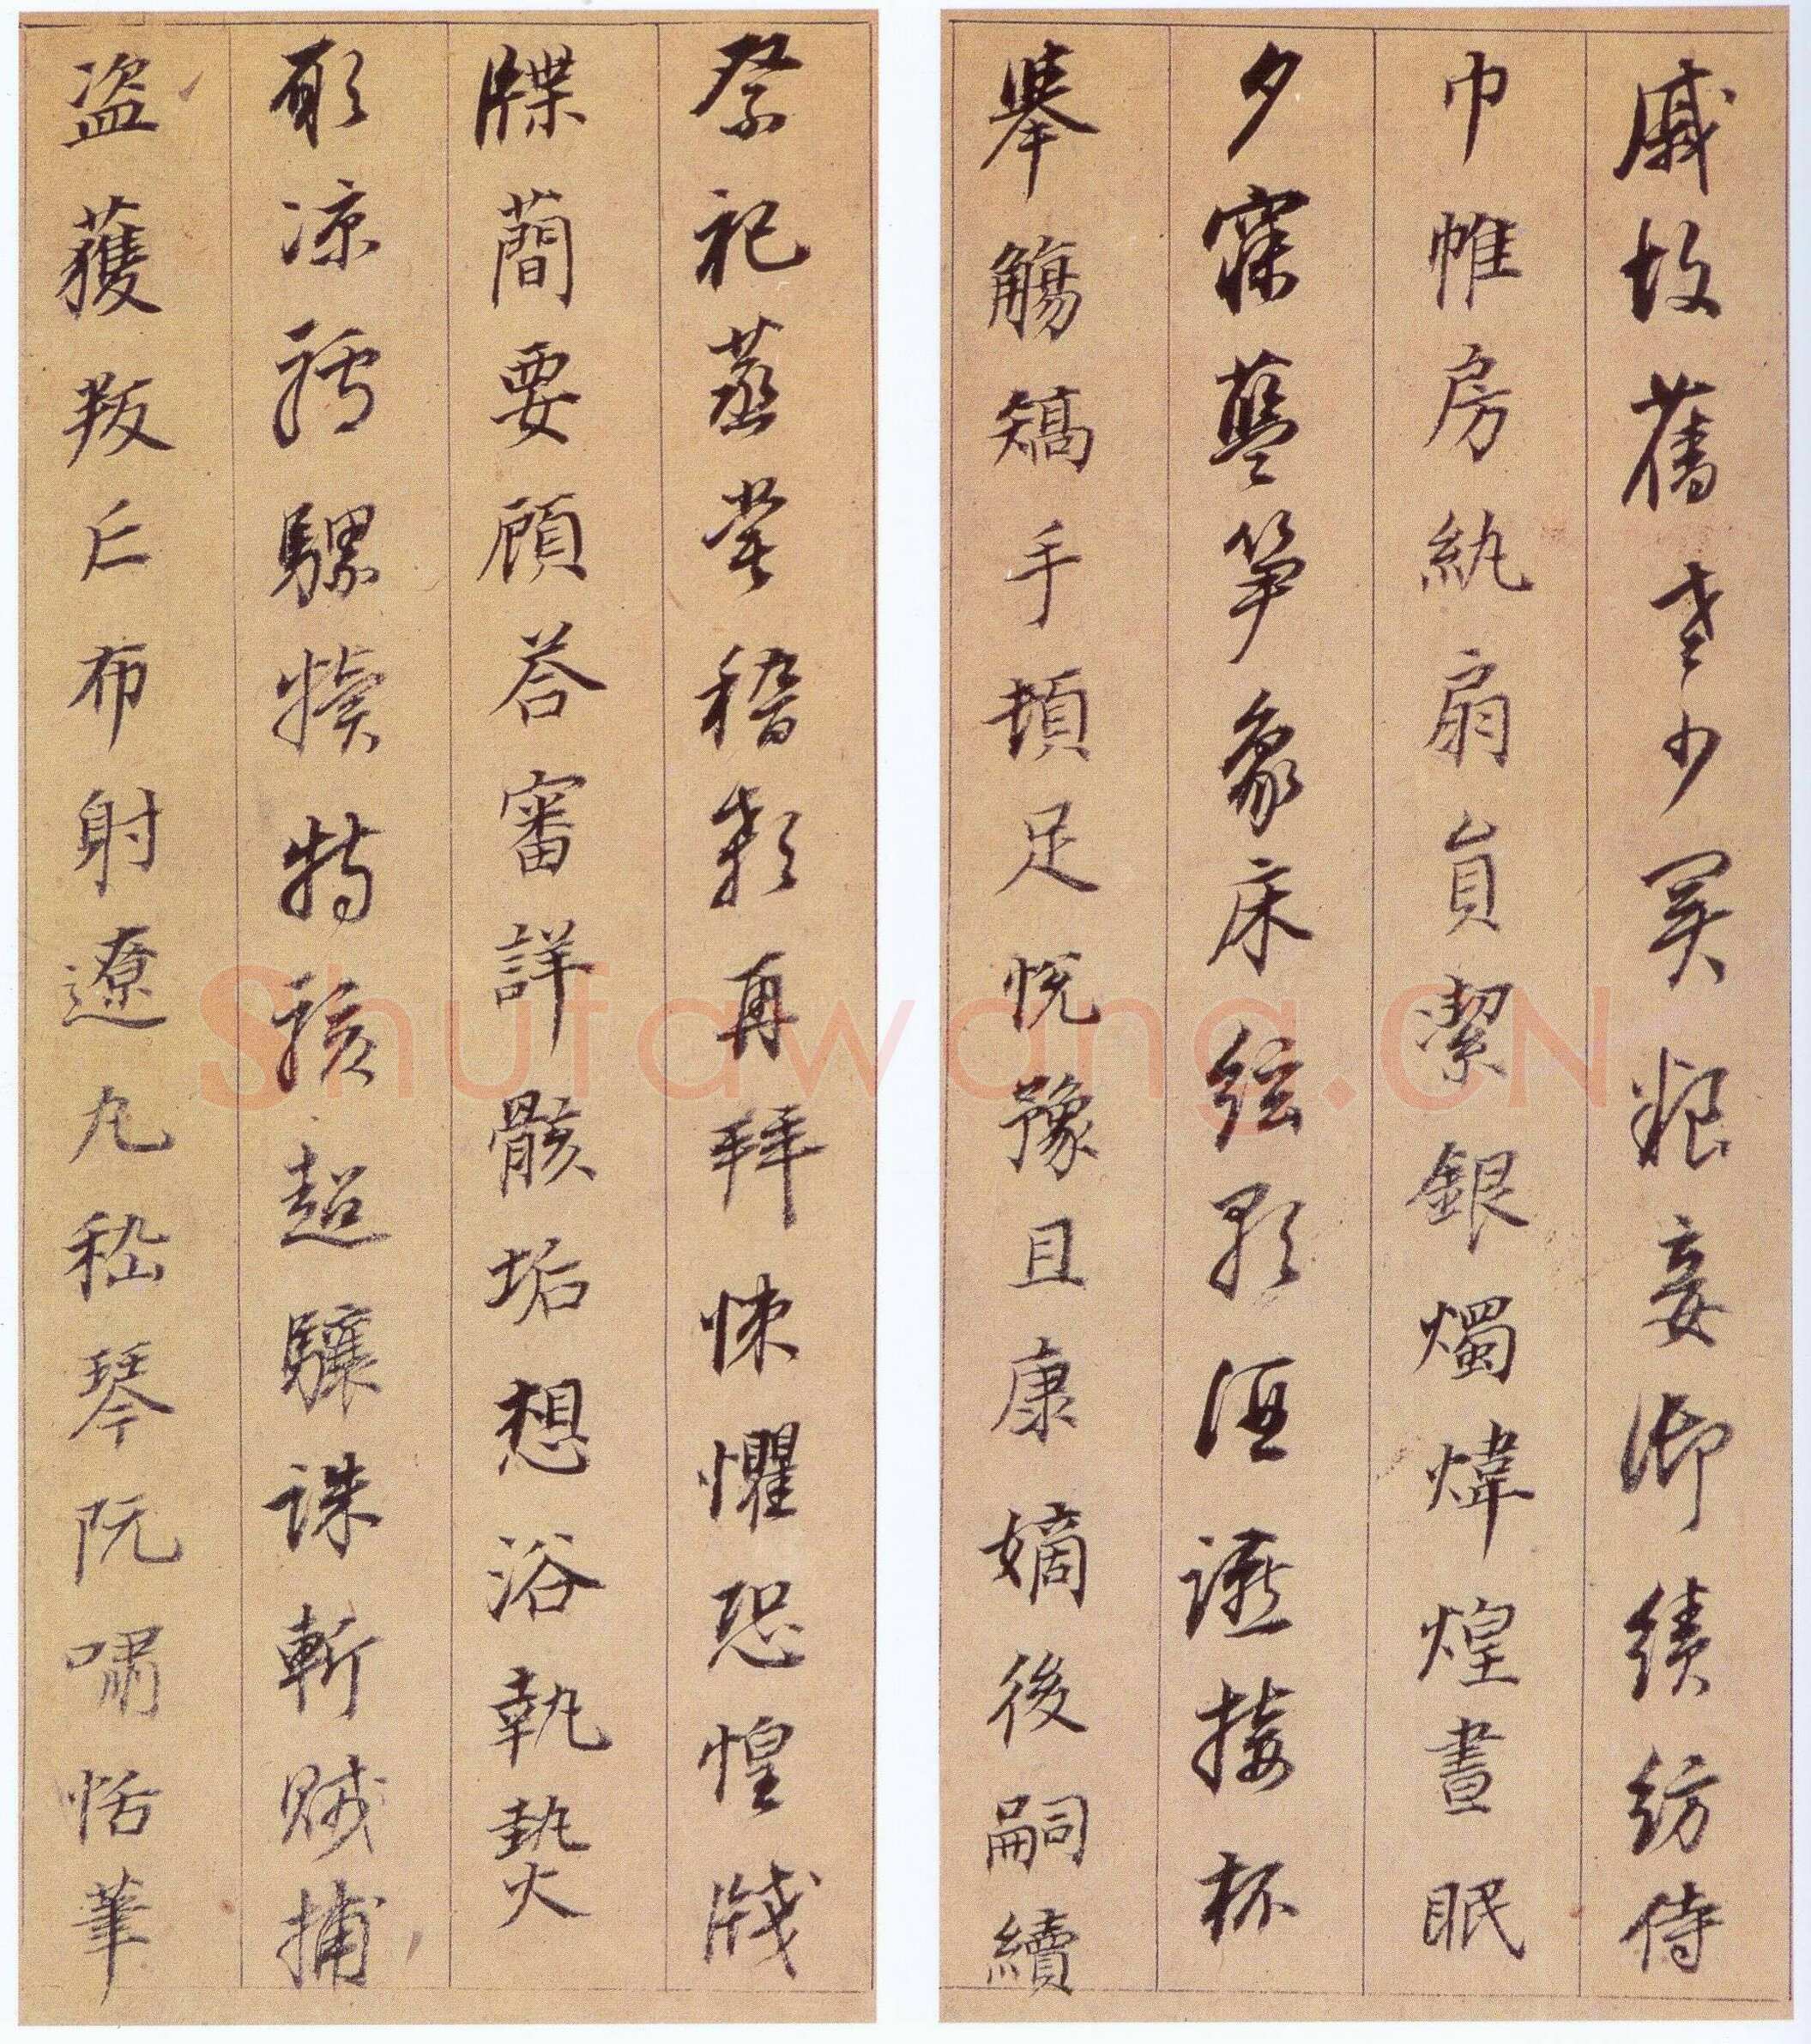 戚故舊老少異粮妾御績紡侍
巾帷房紈扇員潔銀燭煒煌晝眠
夕寐藍笋象床絃歌酒讌接杯
舉觴矯手頓足悅豫且康嫡後嗣續
祭祀蒸嘗稽顙再拜悚懼恐惶牋
牒蕳要顧荅審詳骸垢想浴執熱
願凉驢騾犢特駭超驤誅斬賊捕
盗獲叛亡布射遼丸嵇琴阮嘯恬筆
Shufawang.CN